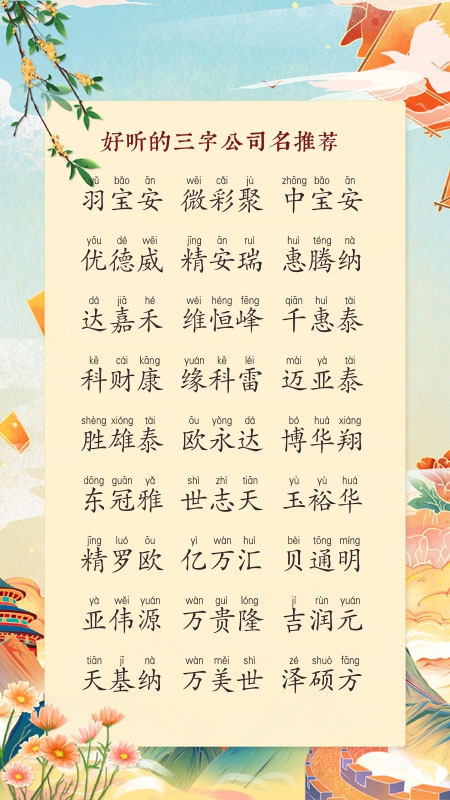 好听的三字公司名推荐
yǔ bǎo ān wēi cǎi jù zhōng bǎo ān
羽宝安 微彩聚 中宝安
yōu dé wēi jīng ān ruì huì téng nà
优德威 精安瑞 惠腾纳
dá jiā hé wéi héng fēng qiān huì tài
达嘉禾 维恒峰 千惠泰
kē cái kāng yuán kē léi mài yà tài
科财康 缘科雷 迈亚泰
shèng xióng tài ōu yǒng dá bó huá xiáng
胜雄泰 欧永达 博华翔
dōng guān yǎ shì zhì tiān yù yù huá
东冠雅 世志天 玉裕华
jīng luó ōu yì wàn huì bèi tōng míng
精罗欧 亿万汇 贝通明
yà wěi yuán wàn guì lóng jí rùn yuán
亚伟源 万贵隆 吉润元
tiān jī nà wàn měi shì zé shuò fāng
天基纳 万美世 泽硕方